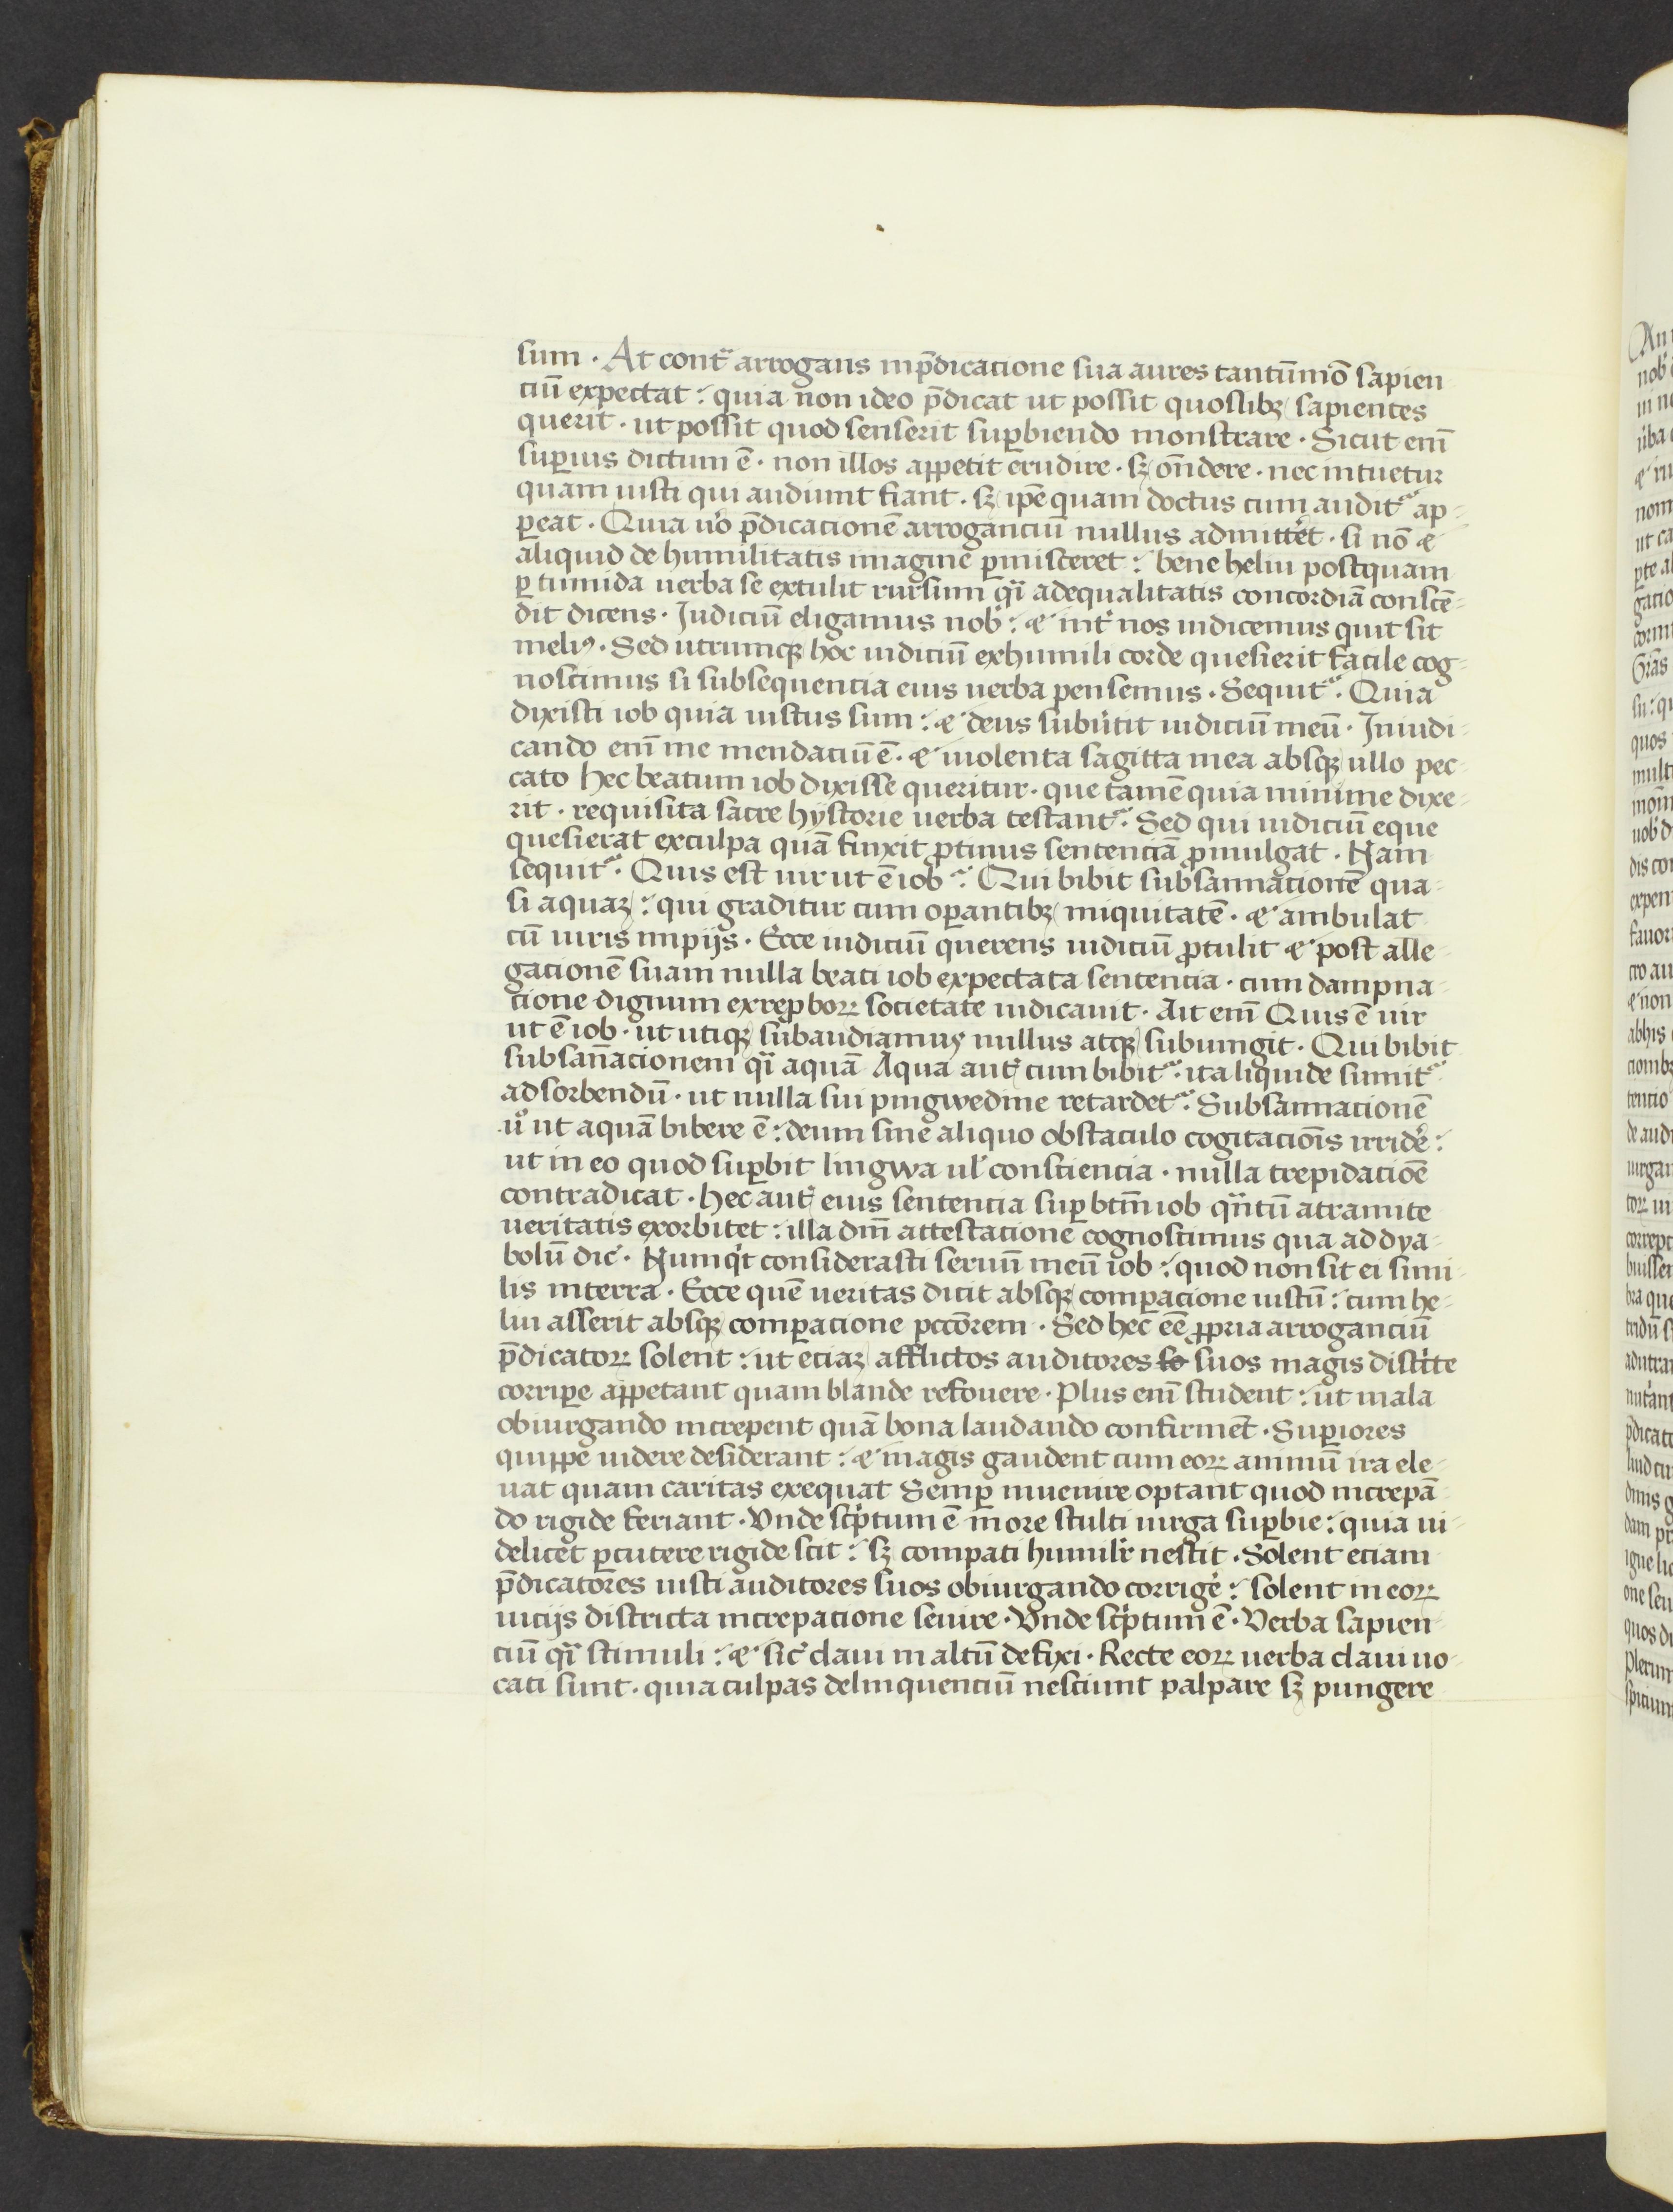 sum · At contᵃ arrogans inp̄dicacione sua aures tantūmō sapien
ciū expectat : quia non ideo p̄dicat ut possit quoslibꝫ sapientes
querit · ut possit quod senserit suꝑbiendo monstrare · Sicut enī
suꝑius dictum ē · non illos appetit erudire · sꝫ on̄dere · nec intuetur
quam iusti qui audiunt fiant · sꝫ ip̄e quam doctus cum audit᷑ ap-
ꝑeat · Quia u͛o p̄dicacionē arroganciū nullus admitt͛et · si nō &
aliquid de humilitatis imagine ꝑmisceret : bene heliu postquam
ꝑ tumida uerba se extulit rursum qᷓi adequalitatis concordiā conscē-
dit dicens · Judiciū eligamus nob̛ : & int͛ nos iudicemus quit sit
meliꝰ · Sed utrumqꝫ hoc iudiciū exhumili corde quesierit facile cog-
noscimus si subsequencia eius uerba pensemus · Sequit᷑ · Quia
dixisti iob quia iustus sum : & deus subu͛tit iudiciū meū · Iniudi-
cando enī me mendaciū ē · & uiolenta sagitta mea absqꝫ ullo pec-
cato Hec beatum iob dixisse queritur · que tamē quia minime dixe-
rit · requisita sacre hystorie uerba testant᷑ · Sed qui iudiciū eque
quesierat exculpa quā finxit ꝓtinus sentenciā ꝓmulgat · Nam
sequit᷑ · Quis est uir ut ē iob ? Qui bibit subsannacionē qua-
si aquaꝫ : qui graditur cum oꝑantibꝫ iniquitatē · & ambulat
cū uiris impijs · Ecce iudiciū querens iudiciū ꝓtulit & post alle-
gacionē suam nulla beati iob expectata sentencia · cum dampna-
cione dignum exreꝓboꝝ societate iudicauit · Ait enī Quis ē uir
ut ē iob · ut utiqꝫ subaudiamus nullus atqꝫ subiungit · Qui bibit
subsan̄acionem qᷓi aquā Aqua aut̄ cum bibit᷑ · ita liquide sumit᷑
adsorbendū · ut nulla sui pingwedine retardet᷑ · Subsannacionē
uͦ ut aquā bibere ē : deum sine aliquo obstaculo cogitacōis irride͛ :
ut in eo quod suꝑbit lingwa ul̛ consciencia · nulla trepidacioē
contradicat · hec aut̄ eius sentencia suꝑ btm̄ iob qᷓntū atramite
ueritatis exorbitet : illa dn̄i attestacione cognoscimus qua ad dya-
bolū dic̛ · Numqͥt considerasti seruū meū iob : quod non sit ei simi-
lis interra · Ecce quē ueritas dicit absqꝫ comꝑacione iustū : cum he-
liu asserit absqꝫ comꝑacione pccōrem · Sed hec eē ꝓpria arroganciū
p̄dicatoꝝ solent : ut eciaꝫ afflictos auditores so suos magis distͥcte
corriꝑe appetant quam blande refouere · Plus enī student : ut mala
obiurgando increpent quā bona laudando confirmēt · Suꝑiores
quippe uidere desiderant : & magis gaudent cum eoꝝ animū ira ele-
uat quam caritas exequat Semꝑ inuenire optant quod increpā-
do rigide feriant · Vnde scͥptum ē inore stulti uirga suꝑbie : quia ui-
delicet ꝑcutere rigide scit : sꝫ compati humilit͛ nescit · Solent eciam
p̄dicatores iusti auditores suos obiurgando corrige͛ : solent in eoꝝ
uicijs districta increpacione seuire · Vnde scͥptum ē · Verba sapien-
ciū qᷓi stimuli : & sic̛ claui in altū defixi · Recte eoꝝ uerba claui uo-
cati sunt · quia culpas delinquenciū nesciunt palpare sꝫ pungere